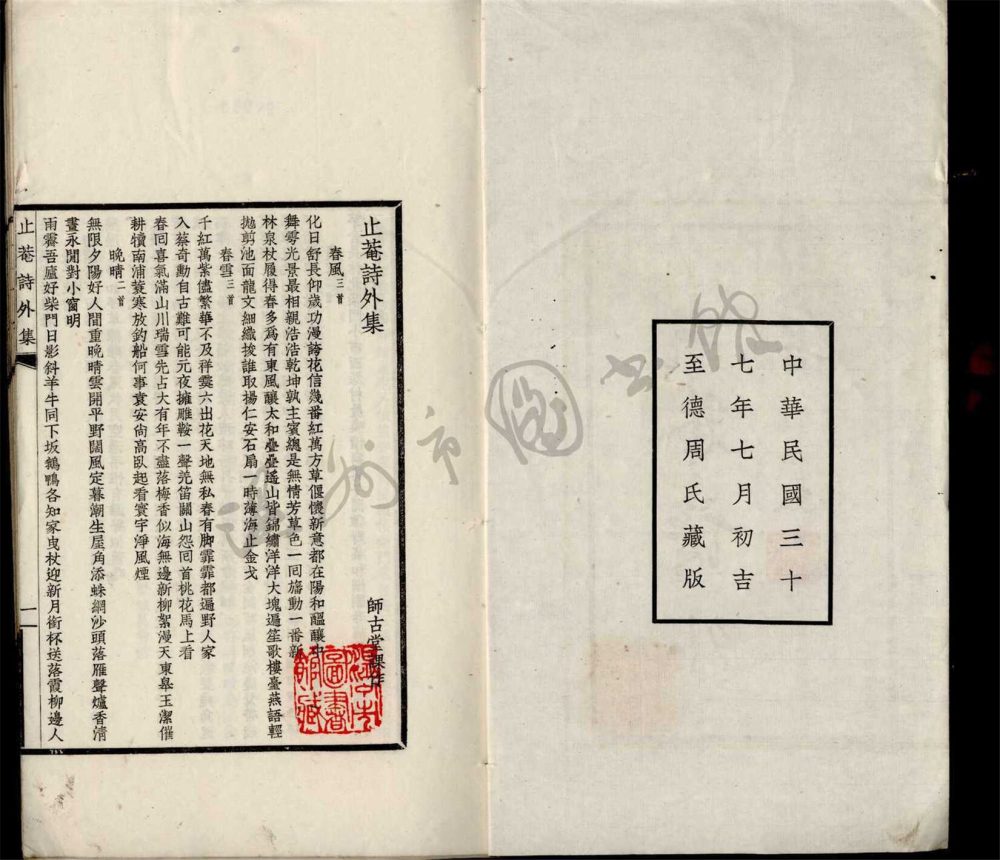 中華民國三十
七年七月初吉
至德周氏藏版
止菴詩外集
師古堂課作
春風三首
化日舒長仰歲功漫誇花信幾番紅萬方草偃懷新意都在陽和醞釀中
舞雩光景最相親浩浩乾坤孰主賓總是無情芳草色一回旛動一番新
林泉杖履得春多爲有東風釀太和疊疊遙山皆錦繡洋洋大塊遍笙歌樓臺燕語輕
拋剪池面龍文細織梭誰取揚仁安石扇一時薄海止金戈
春雪三首
千紅萬紫儘繁華不及祥霙六出花天地無私春有脚霏霏都遍野人家
入蔡奇勳自古難可能元夜擁雕鞍一聲羌笛關山怨回首桃花馬上看
春回喜氣滿山川瑞雪先占大有年不盡落梅香似海無邊新柳絮漫天東皋玉潔催
耕犢南浦蓑寒放釣船何事袁安尙高臥起看寰宇淨風煙
晚晴二首
無限夕陽好人間重晚晴雲開平野闊風定暮潮生屋角添蛛網沙頭落雁聲爐香清
晝永閒對小窗明
雨霽吾廬好柴門日影斜羊牛同下坂鵝鴨各知家曳杖迎新月銜杯送落霞柳邊人
止菴詩外集
一
溫州市圖書館藏
溫州市圖書館